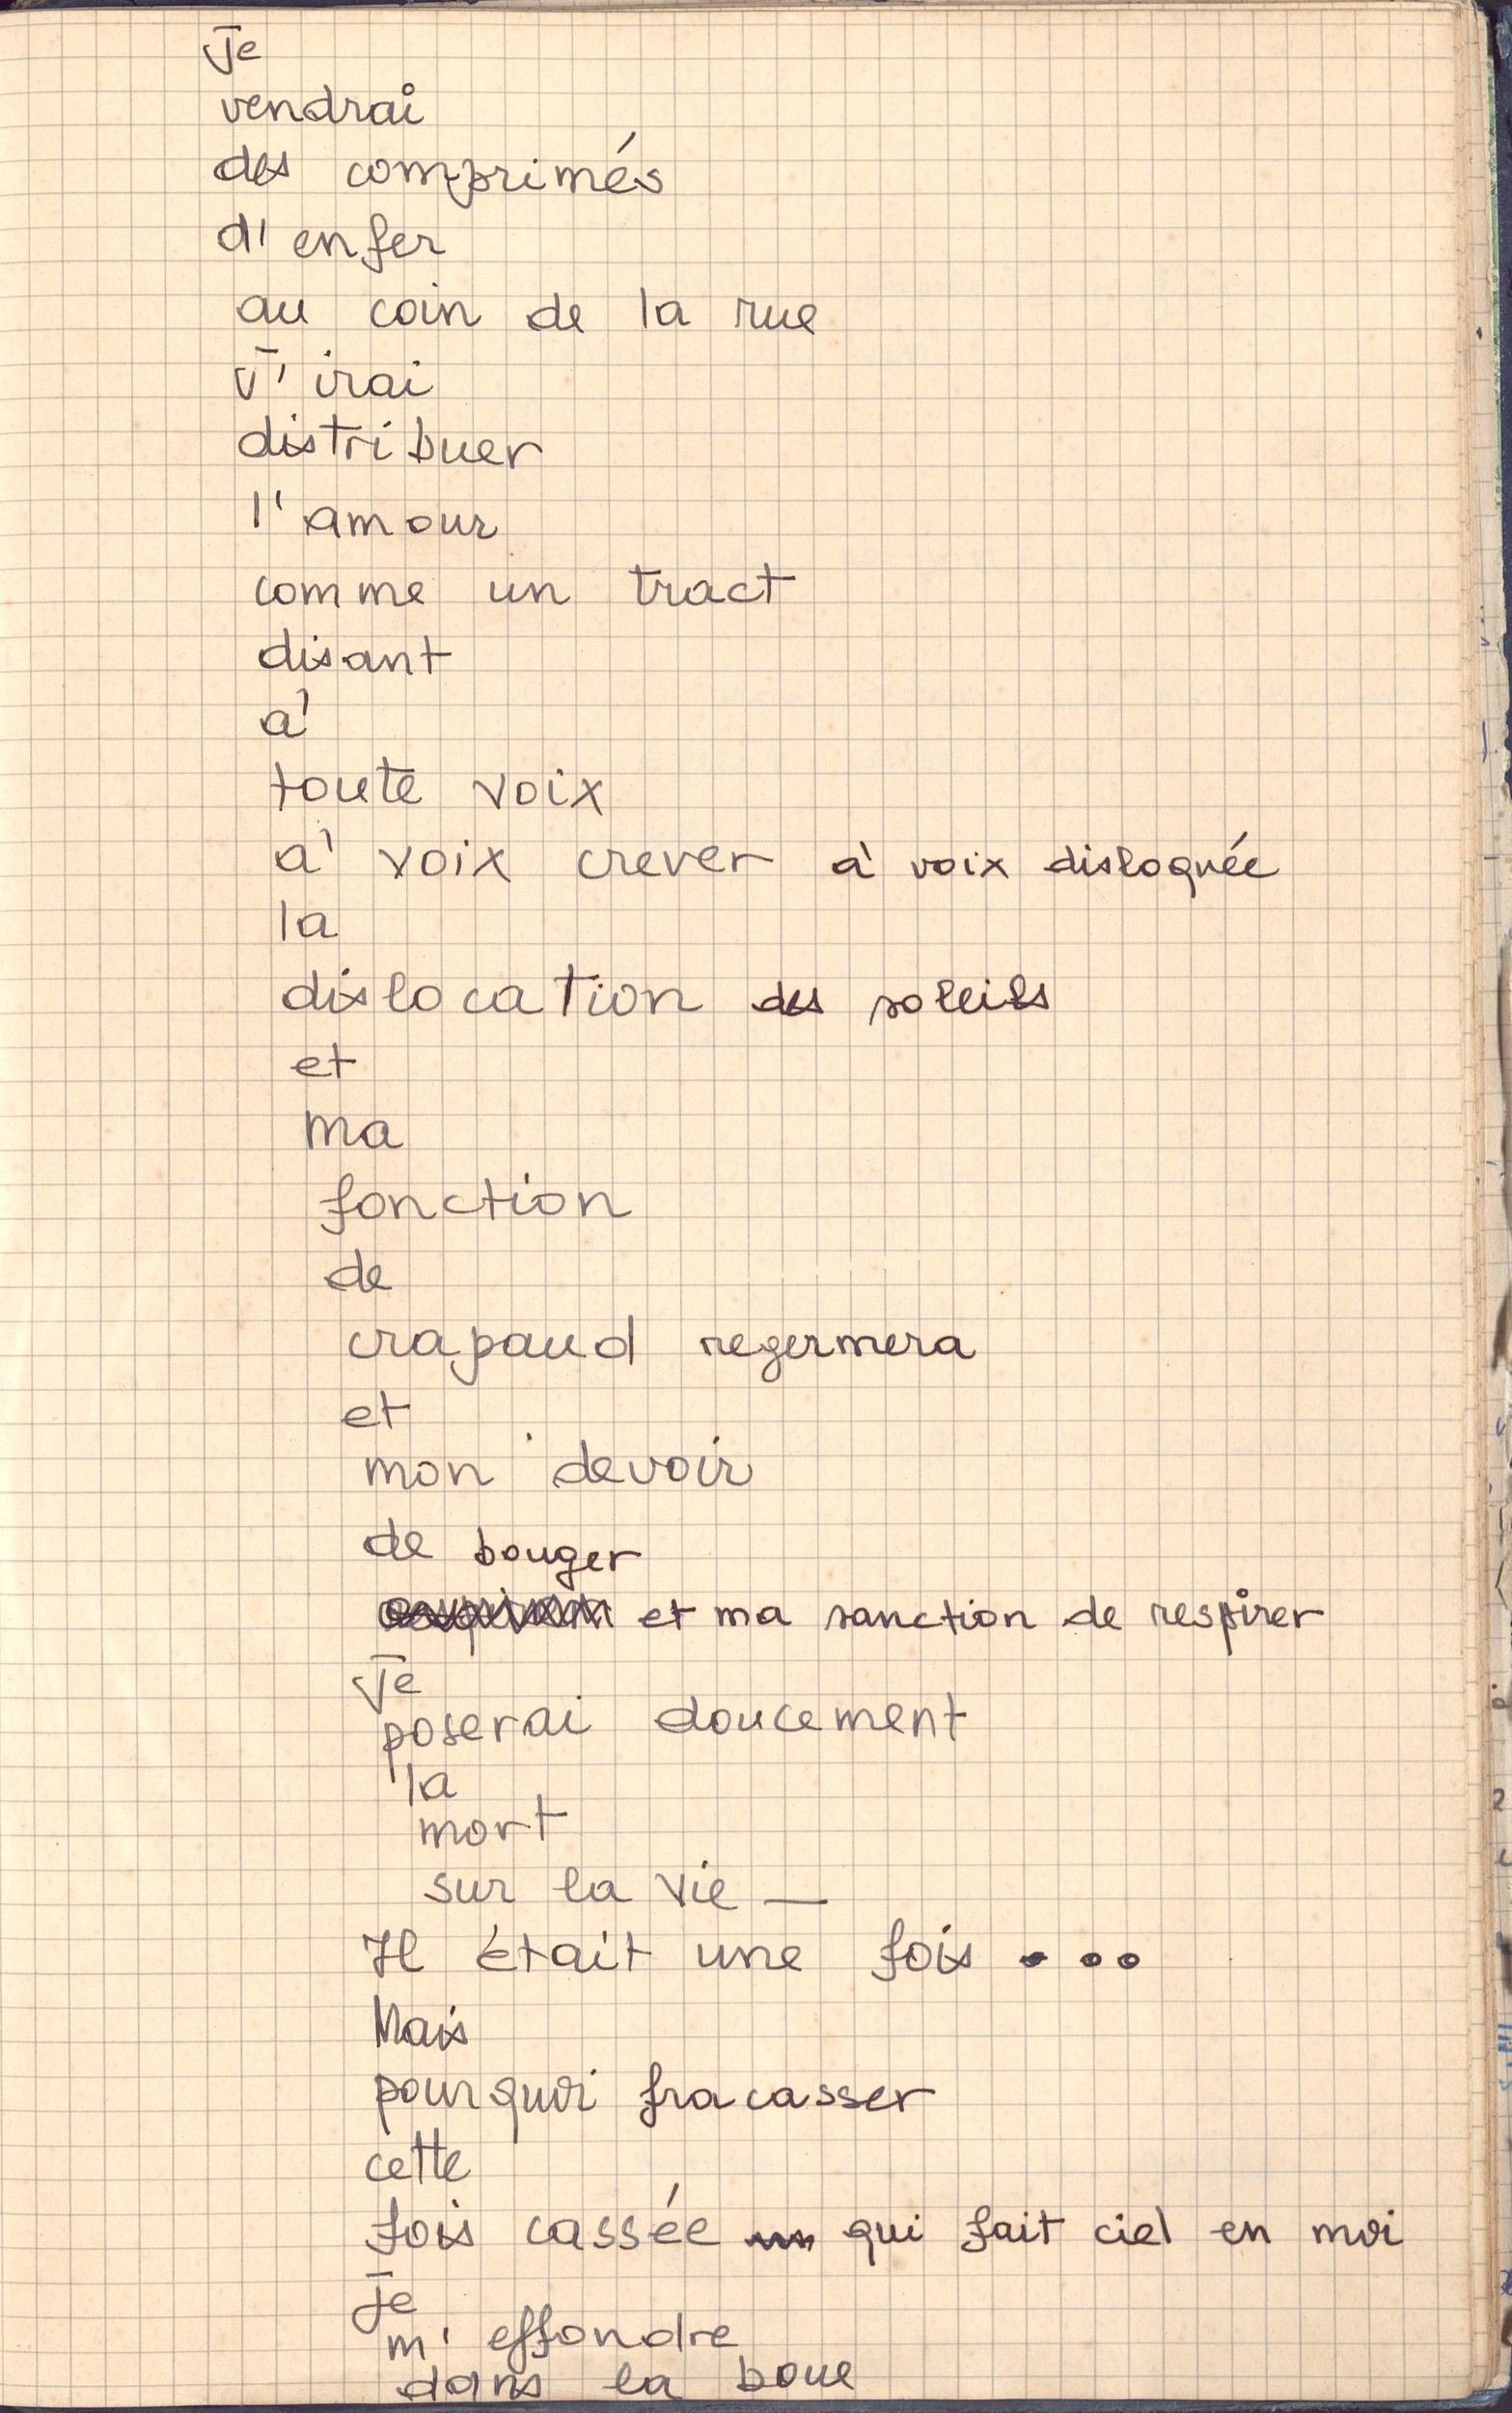 Je
vendrai
des comprimés
d'enfer
au coin de la rue
J'irai
distribuer
l'amour
comme un tract
disant
à
toute voix
à voix crever à voix disloquée
la
dislocation des soleils
et
ma
fonction
de
crapaud regermera
et
mon devoir
de bouger
et ma sanction de respirer
Je
poserai doucement
la
mort
sur la vie —
Il était une fois ...
Mais
pourquoi fracasser
cette
fois cassée qui fait ciel en moi
Je
m'effondre
dans la boue